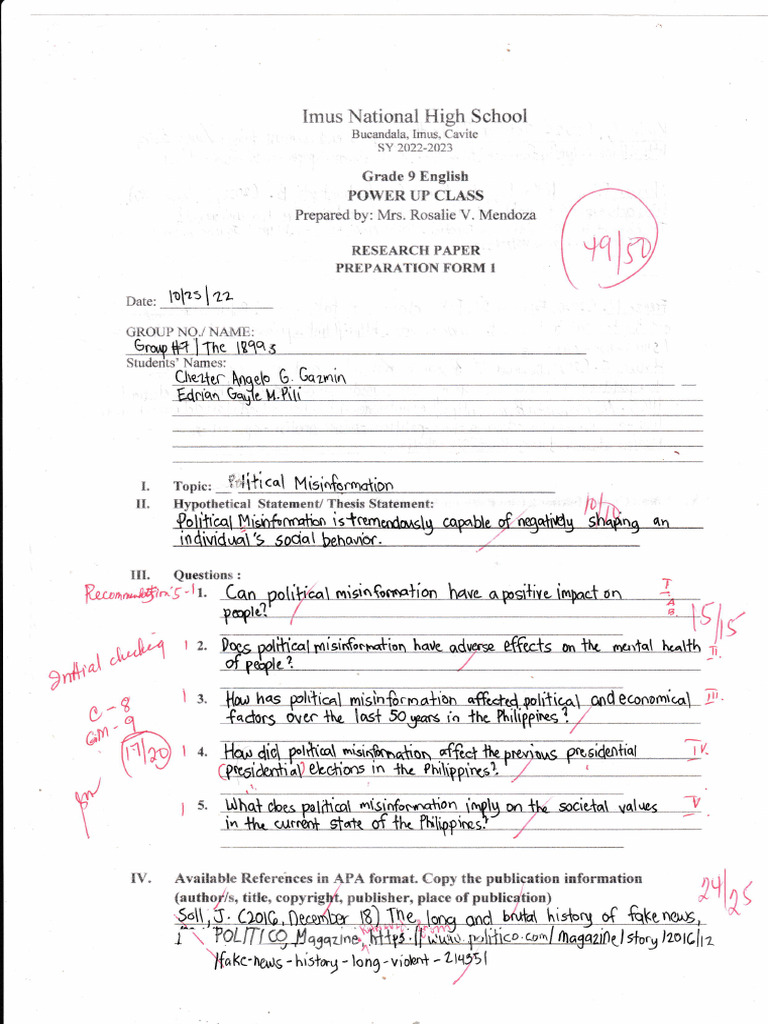 Imus National High School
Bucandala, Imus, Cavite
SY 2022-2023
Grade 9 English
POWER UP CLASS
Prepared by: Mrs. Rosalie V. Mendoza
49/50
RESEARCH PAPER
PREPARATION FORM 1
Date: 10/25/22
GROUP NO./ NAME:
Group #7 | The 1899s
Students' Names:
Chezter Angelo G. Gazmin
Edrian Gayle M. Pili
I. Topic: Political Misinformation
II. Hypothetical Statement/ Thesis Statement: 10/10
Political Misinformation is tremendously capable of negatively shaping an
individual's social behavior.
III. Questions :
1. Can political misinformation have a positive impact on I
people? A B. 15/15
Initial checking 1 2. Does political misinformation have adverse effects on the mental health II.
of people?
C - 8 1 3. How has political misinformation affected political and economical III.
GM - 9 factors over the last 50 years in the Philippines?
17/20 1 4. How did political misinformation affect the previous presidential IV.
(presidential) elections in the Philippines?
1 5. What does political misinformation imply on the societal values V
in the current state of the Philippines?
IV. Available References in APA format. Copy the publication information 24/25
(author/s, title, copyright, publisher, place of publication)
Soll, J. (2016, December 18) The long and brutal history of fake news,
1 POLITICO Magazine https://www.politico.com/magazine/story/2016/12
/fake-news-history-long-violent-214351